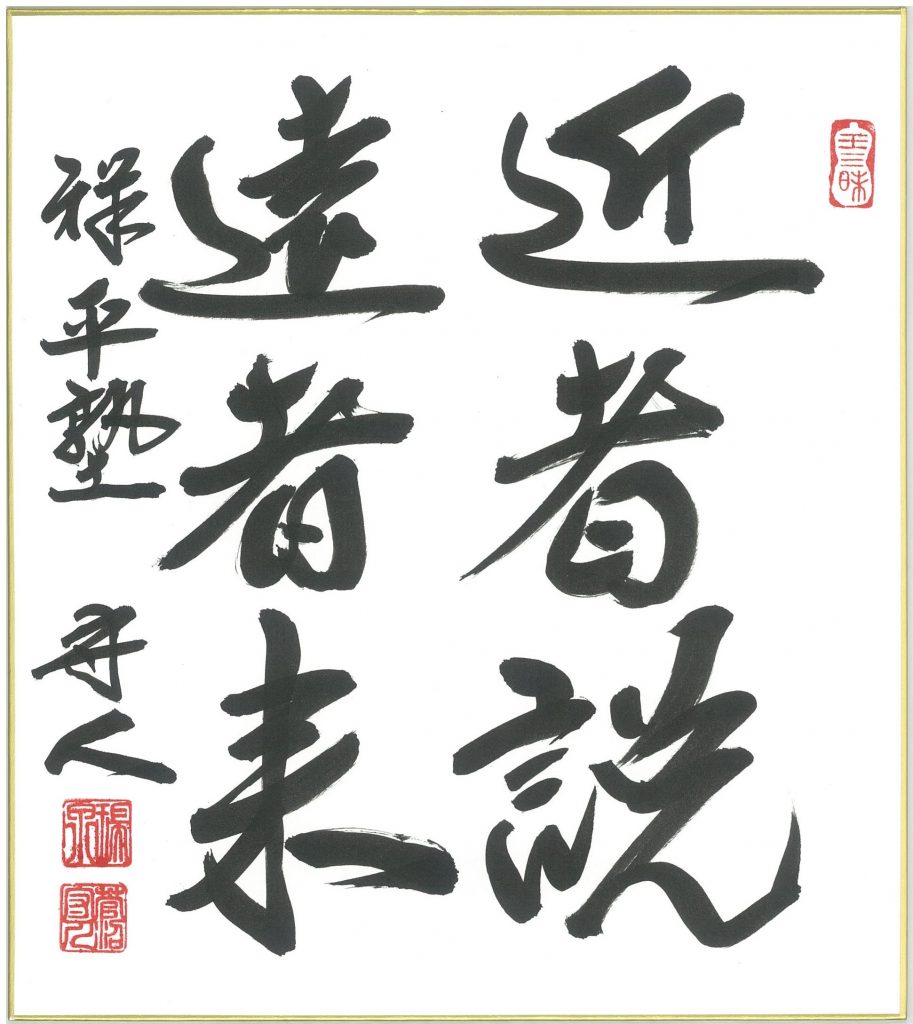 近者説
遠者来
祥平塾 人